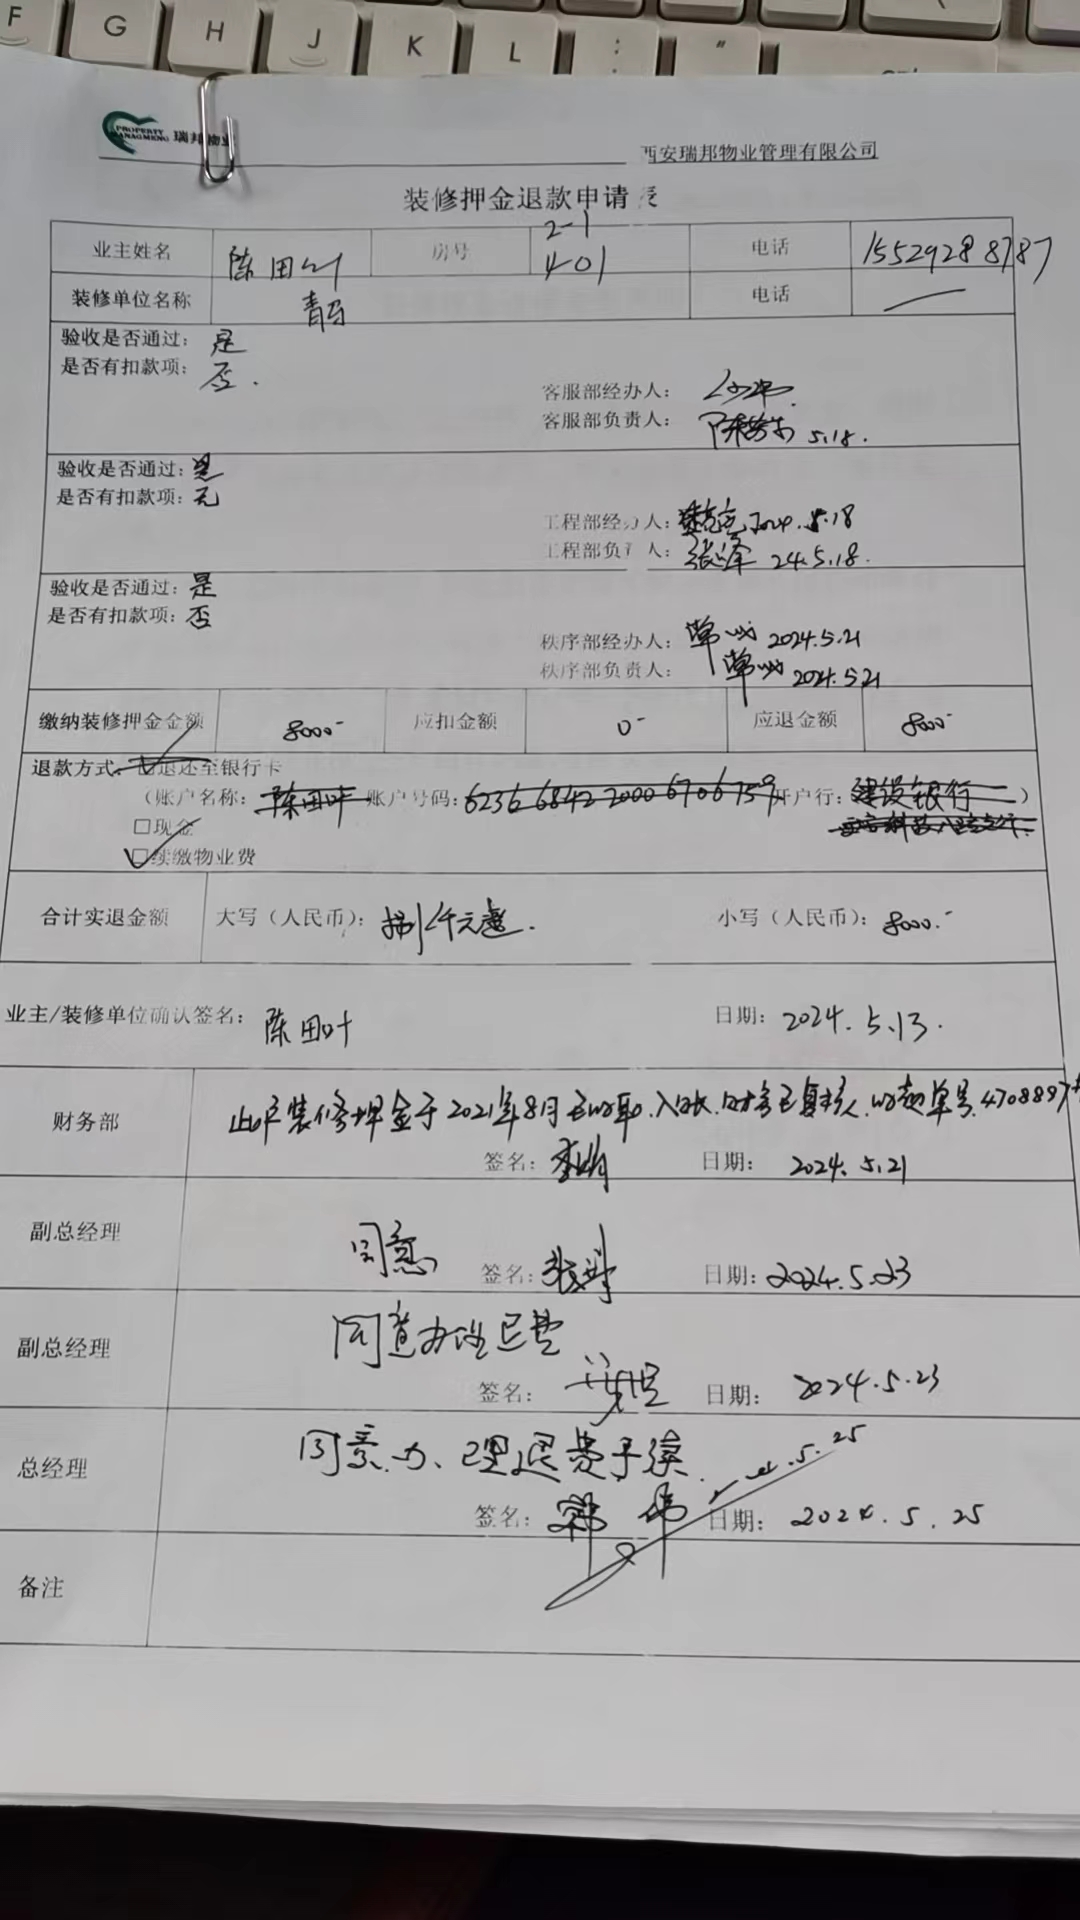 F G H J K L : "
PROPERTY MANAGMENG 瑞邦物业
西安瑞邦物业管理有限公司
装修押金退款申请表
业主姓名 陈田叶 房号 2-1 401 电话 15529288787
装修单位名称 电话
验收是否通过：是
是否有扣款项：否.
客服部经办人：
客服部负责人： 5.18.
验收是否通过：是
是否有扣款项：无
工程部经办人： 2024.5.18
工程部负责人：张泽 24.5.18.
验收是否通过：是
是否有扣款项：否
秩序部经办人： 2024.5.21
秩序部负责人： 2024.5.21
缴纳装修押金金额 8000- 应扣金额 0- 应退金额 8000-
退款方式：□退还至银行卡
（账户名称：陈田叶 账户号码：6236 6842 2000 6706 759 开户行：建设银行）
□现金
□续缴物业费
合计实退金额 大写（人民币）：捌仟元整. 小写（人民币）：8000.-
业主/装修单位确认签名：陈田叶 日期：2024.5.13.
财务部 此户装修押金于2021年8月已收取.入账.财务已复核.收款单号.4708897
签名： 日期：2024.5.21
副总经理 同意
签名： 日期：2024.5.23
副总经理 同意办理退费
签名： 日期：2024.5.23
总经理 同意办理退费手续.
签名：郭伟 日期：2024.5.25
备注